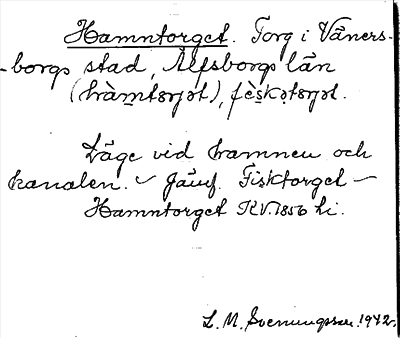 Hamntorget. Torg i Väners-
-borgs stad, Älfsborgs län
(hàm̱tɔrjət), fèsḵətɔrjət.
Läge vid hamnen och
kanalen. – Jämf. Fisktorget –
Hamntorget KV. 1856 hi.
L. M. Svenungsson. 1942.